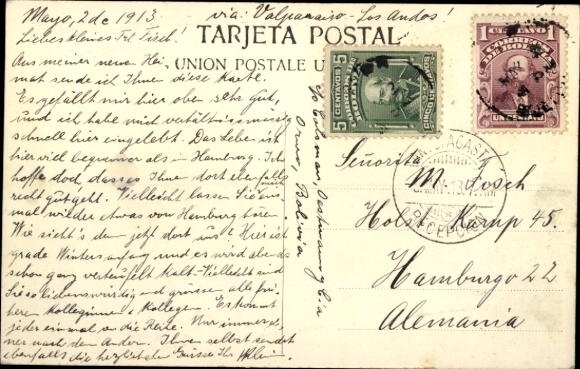 Mayo, 2 de 1913
via: Valparaiso - Los Andos!
Liebes kleines Frl. Tisch!
TARJETA POSTAL
UNION POSTALE U
Aus meiner neuen Hei-
mat sende ich Ihnen diese Karte.
Es gefällt mir hier oben sehr gut,
und ich habe mich verhältnismässig
schnell hier eingelebt. Das Leben ist
hier viel bequemer als in Hamburg. Ich
hoffe doch, dass es Ihnen dort ebenfalls
recht gut geht. Vielleicht lassen Sie auch
mal wieder etwas von Hamburg hören
Wie sieht's den jetzt dort aus? Hier ist
grade Winters anfang und es wird aber
schon ganz verteufelt kalt. Vielleicht sind
Sie so liebenswürdig und grüssen alle frü-
heren Kolleginnen & Kollegen. Es kommt
jeder einmal an die Reihe. Nur immer
ner nach dem Andern. Ihnen selbst sendet
ebenfalls die herzlichsten Grüsse Ihr
c/o Colsman, Oestmann & Cia
Oruro, Bolivia
5 CENTAVOS 5
CORREOS DE
BOLIVIA
5 CINCO CENTAVOS 5
1 CENTAVO 1
CORREOS
DE BOLIVIA
UN CENTAVO
ANTOFAGASTA
RECEPCION
Señorita
M. Tosch
Holst. Kamp 45.
Hamburgo 22
Alemania